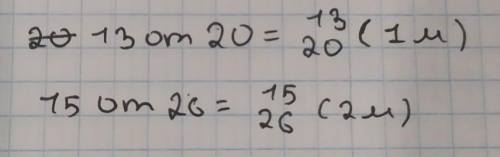 20 13 от 20 = 13/20 (1 м)
15 от 26 = 15/26 (2 м)